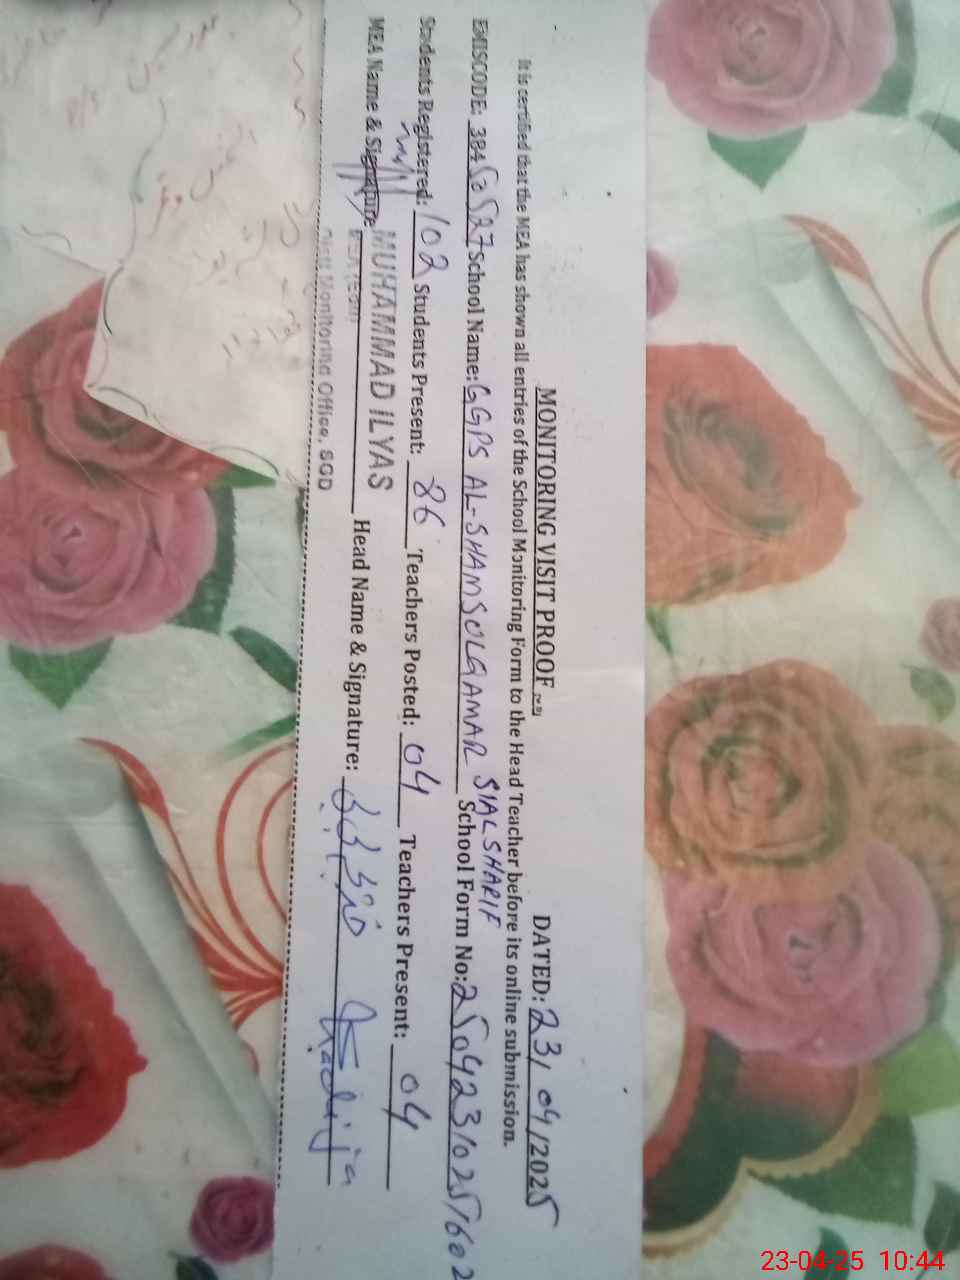 MONITORING VISIT PROOF DATED: 23/04/2025
It is certified that the MEA has shown all entries of the School Monitoring Form to the Head Teacher before its online submission.
EMISCODE: 38452527 School Name: GGPS AL-SHAMSULQAMAR SIAL SHARIF School Form No: 25042310251602
Students Registered: 102 Students Present: 86 Teachers Posted: 04 Teachers Present: 04
MEA Name & Signature MUHAMMAD ILYAS Head Name & Signature: Khadija
Distt Monitoring Office, SGD
23-04-25 10:44